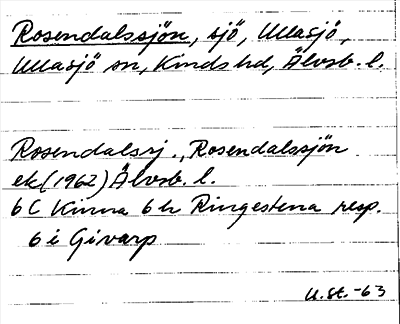 Rosendalssjön, sjö, Ullasjö,
Ullasjö sn, Kinds hd, Älvsb. l.
Rosendalssj., Rosendalssjön
ek (1962) Älvsb. l.
6 C Kinna 6 h Ringestena resp.
6 i Givarp
U. St. -63